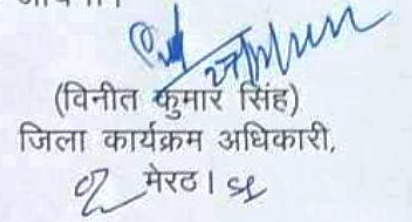 (विनीत कुमार सिंह)
जिला कार्यक्रम अधिकारी,
मेरठ।